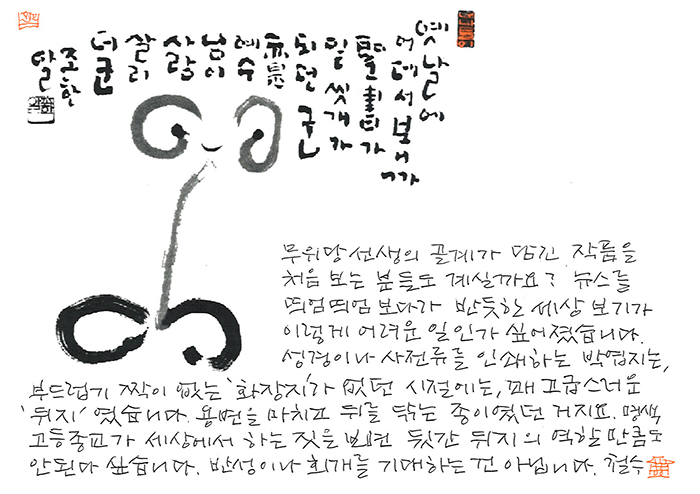 옛날에
어데서 보니까
밑씻개가
되더군
예수
님이
사람
살리
더군
조한
알
무위당 선생의 골계가 담긴 작품을
처음 보는 분들도 계실까요? 뉴스를
띄엄띄엄 보다가 반듯한 세상 보기가
이렇게 어려운 일인가 싶어졌습니다.
성경이나 사전류를 인쇄하는 박엽지는,
부드럽기 짝이 없는 '화장지'가 없던 시절에는, 꽤 고급스러운
'뒤지' 였습니다. 용변을 마치고 뒤를 닦는 종이였던 거지요. 명색
고등종교가 세상에서 하는 짓을 보면 뒷간 뒤지의 역할 만큼도
안된다 싶습니다. 반성이나 회개를 기대하는 건 아닙니다. 철수